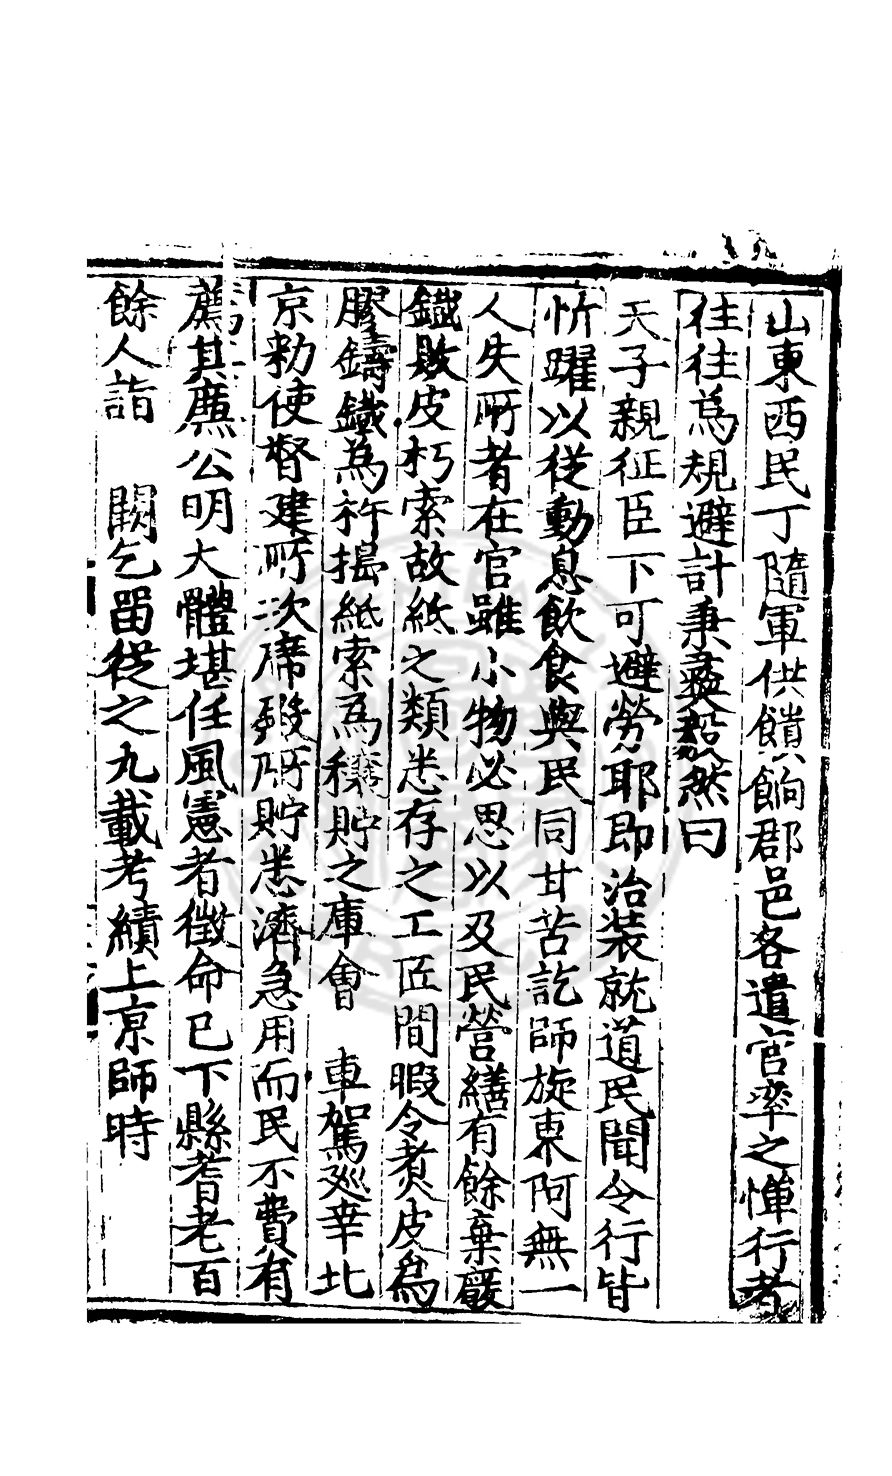 山東西民丁隨軍供饋餉郡邑各遣官率之憚行者
往往為規避計秉彝毅然曰
天子親征臣下可避勞耶即治装就道民聞令行皆
忻躍以從動息飲食與民同甘苦訖師旋東阿無一
人失所者在官雖小物必思以及民營繕有餘棄廢
鐵敗皮朽索故紙之類悉存之工匠間暇令煮皮為
膠鑄鐵為杵搗紙索為穰貯之庫會　車駕廵幸北
京勅使督建所次席殿所貯悉濟急用而民不費有
薦其廉公明大體堪任風憲者徵命已下縣耆老百
餘人詣　闕乞畱從之九載考績上京師時